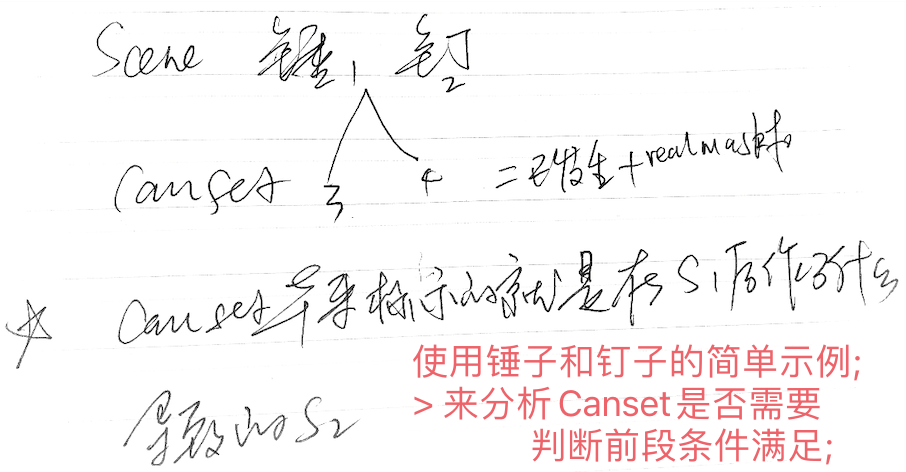 Scene 锤1, 钉2
Canset 3 4 = 已发生 + realmask帧
Canset 本来标示的就是在S1后作了什么
导致的S2
使用锤子和钉子的简单示例;
> 来分析Canset是否需要
判断前段条件满足;